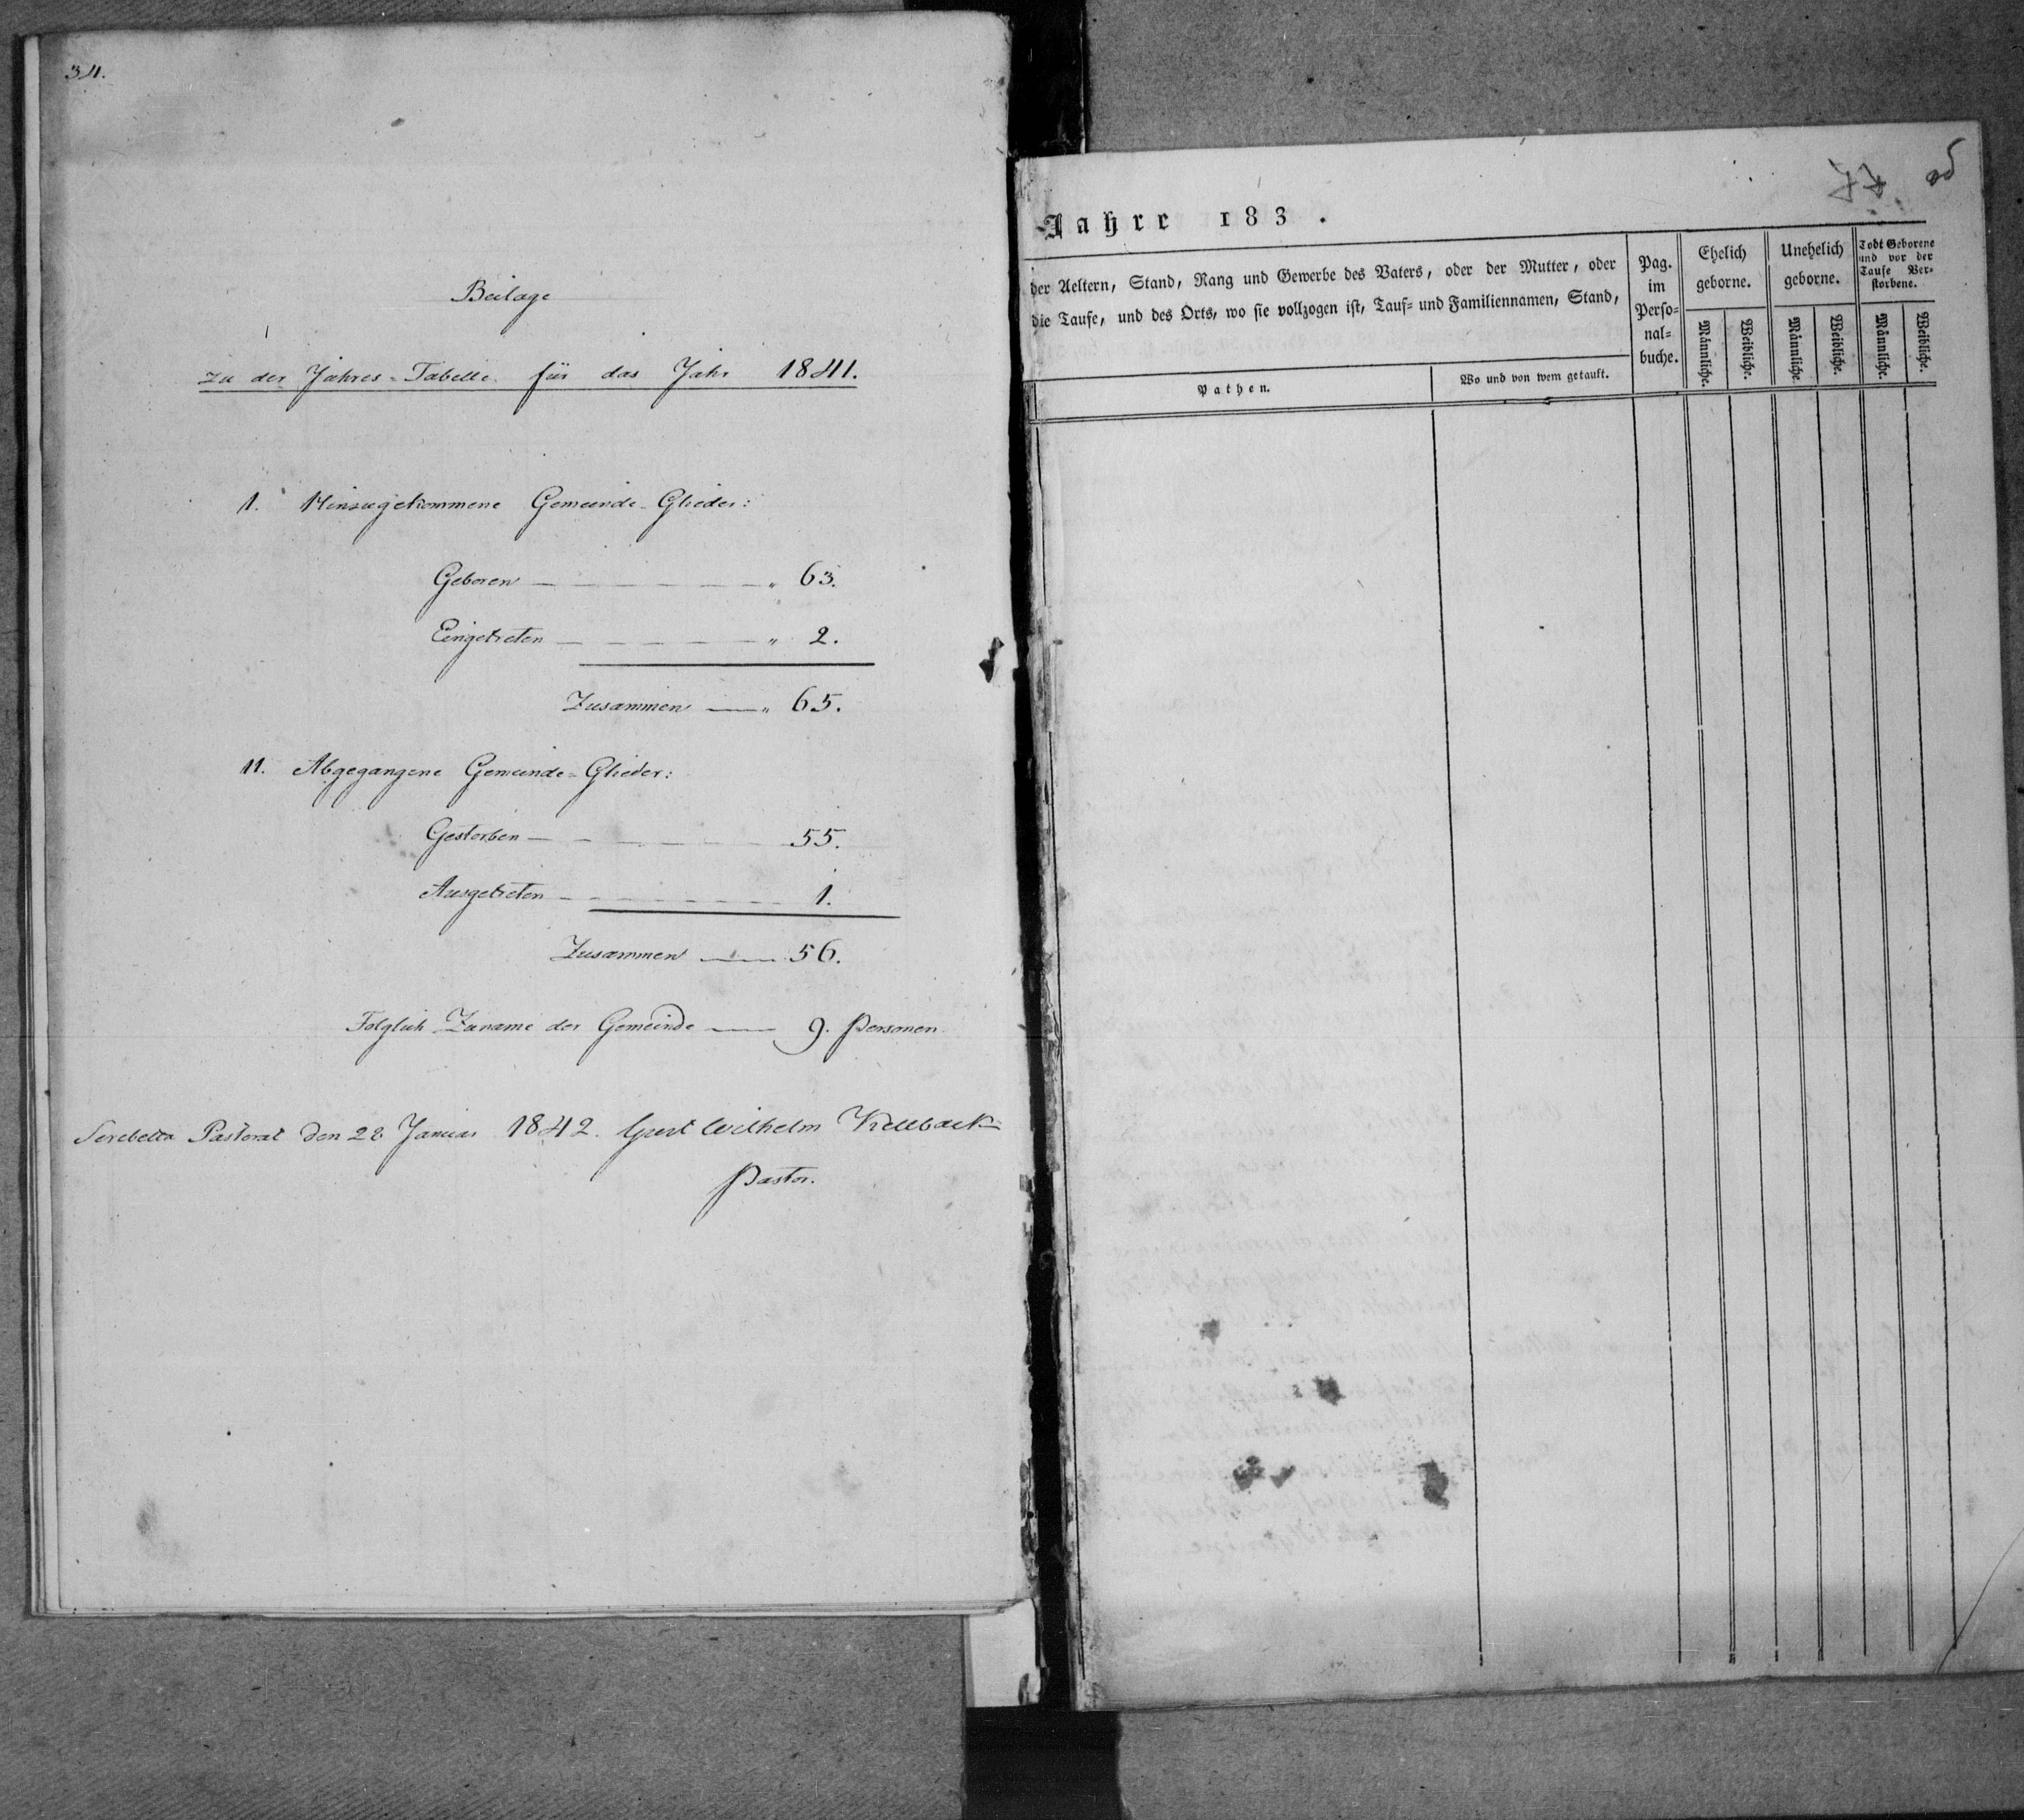 34.
Beilage
zu der Jahres-Tabelle für das Jahr 1841.
1. Hinzugekommene Gemeinde-Glieder:
Geboren — — — — — " 63.
Eingetreten — — — — — " 2.
Zusammen — " 65.
11. Abgegangene Gemeinde-Glieder:
Gestorben — — — — — 55.
Ausgetreten — — — — — 1.
Zusammen — 56.
Folglich Zuname der Gemeinde — 9. Personen
Serebetta Pastorat den 28 Januar 1842. Gust Wilhelm
Pastor.
Jahre 183 .
der Aeltern, Stand, Rang und Gewerbe des Vaters, oder der Mutter, oder
die Taufe, und des Orts, wo sie vollzogen ist, Tauf- und Familiennamen, Stand,
Pathen.
Wo und von wem getauft.
Pag.
im
Perso-
nal-
buche.
Ehelich
geborne.
Männliche.
Weibliche.
Unehelich
geborne.
Männliche.
Weibliche.
Todt Geborene
und vor der
Taufe Ver-
storbene.
Männliche.
Weibliche.